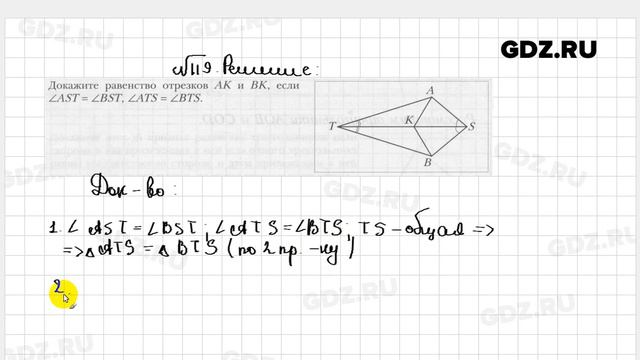 GDZ.RU
№119. Решение:
Докажите равенство отрезков AK и BK, если
∠AST = ∠BST, ∠ATS = ∠BTS.
A
T
K
S
B
Док-во:
1. ∠ AST = ∠BST; ∠ATS = ∠BTS; TS – общая =>
=> △ATS = △BTS (по 2 пр.-ку)
2